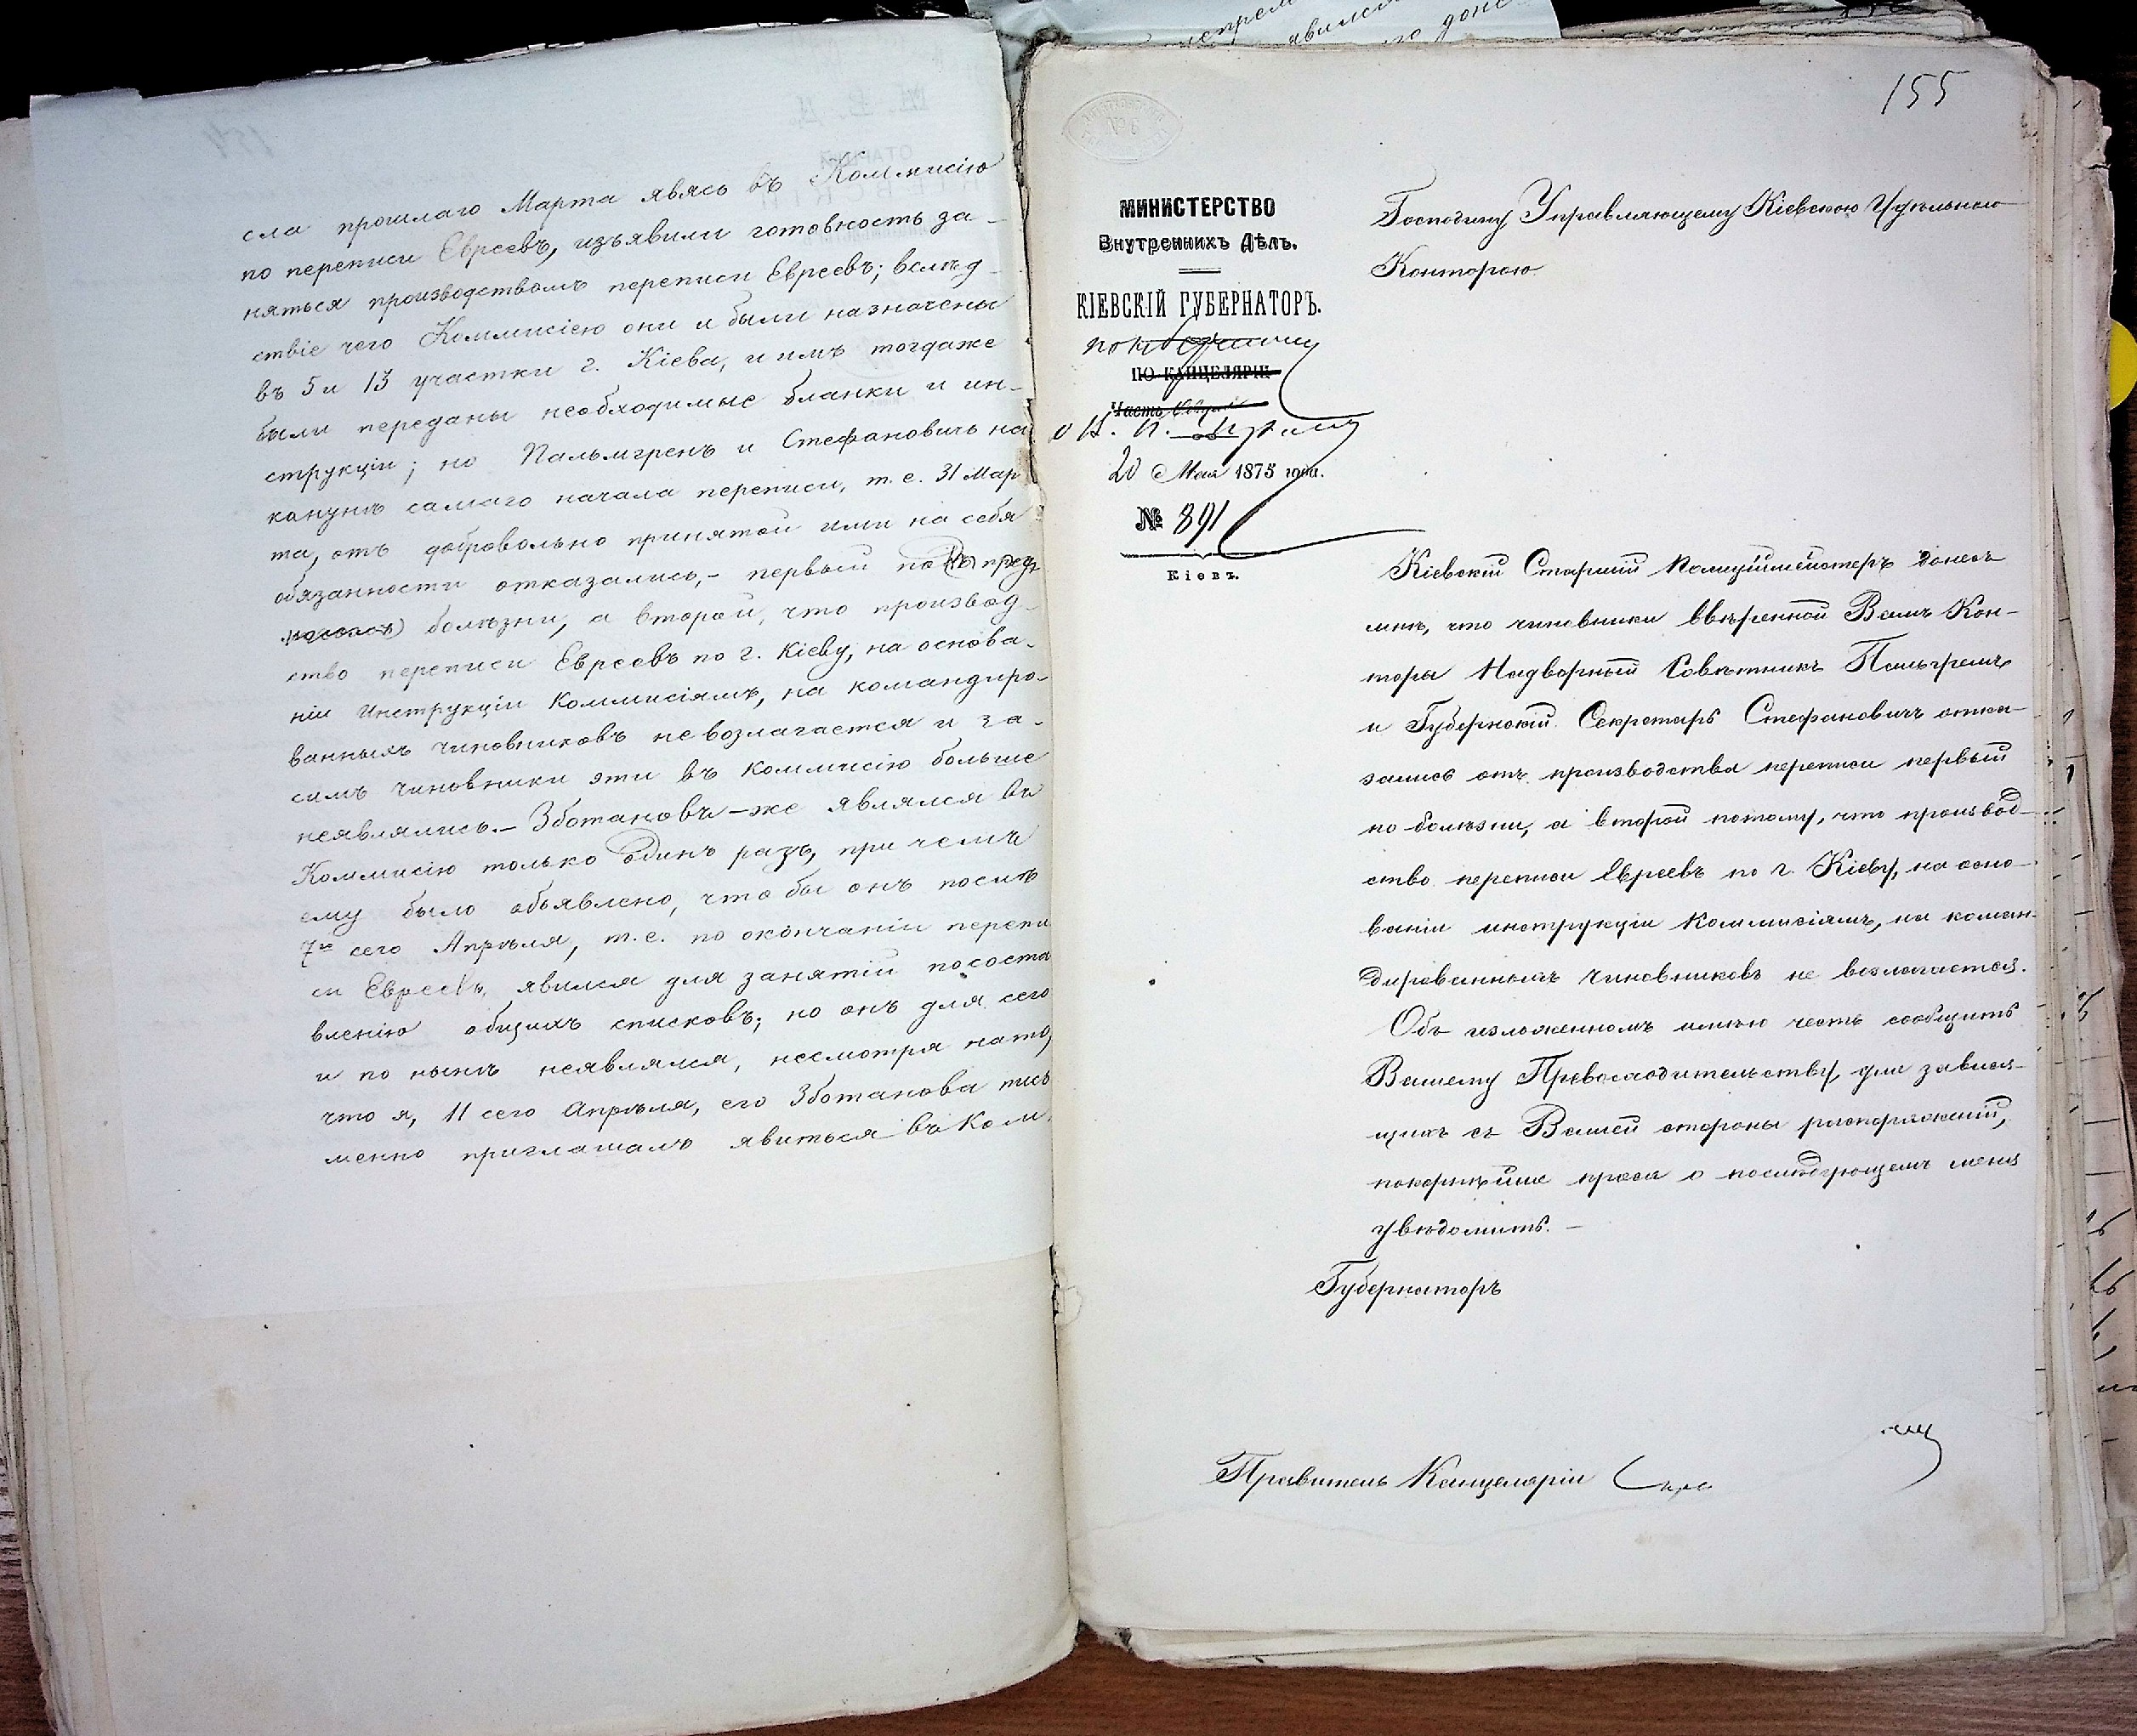 сла прошлаго Марта явясь въ Коммисію
по переписи Евреевъ, изъявили готовность за-
няться производствомъ переписи Евреевъ; вслѣд-
ствіе чего Коммисіею они и были назначены
въ 5 и 13 участки г. Кіева, и имъ тогдаже
были переданы необходимые бланки и ин-
струкціи; но Пальмгренъ и Стефановичъ на
канунѣ самаго начала переписи, т. е. 31 Мар
та, отъ добровольно принятой ими на себя
обязанности отказались,- первый по
болѣзни, а второй, что производ-
ство переписи Евреевъ по г. Кіеву, на основа-
ніи Инструкціи Коммисіямъ, на командиро-
ванныхъ чиновниковъ невозлагается и за-
симъ чиновники эти въ Коммисію больше
неявлялись.- Зботановъ-же являлся въ
Коммисію только одинъ разъ, при чемъ
ему было объявлено, что бы онъ послѣ
7го сего Апрѣля, т. е. по окончаніи перепи
си Евреевъ, явился для занятій по соста
вленію общихъ списковъ; но онъ для сего
и по нынѣ неявлялся, несмотря на то,
что я, 11 сего Апрѣля, его Зботанова пись
менно приглашалъ явиться въ Ком.
155
МИНИСТЕРСТВО
Внутреннихъ Дѣлъ.
КІЕВСКІЙ ГУБЕРНАТОРЪ.
ПО КАНЦЕЛЯРІИ
Часть
20 Мая 1875 года.
№ 891
Кіевъ.
Господину Управляющему Кіевскою Удѣльною
Конторою
Кіевскій Старшій Полиціймейстеръ донесъ
мнѣ, что чиновники ввѣренной Вамъ Кон-
торы Надворный Совѣтникъ Пальгренъ
и Губернскій Секретарь Стефановичъ отка-
зались отъ производства переписи первый
по болѣзни, а второй потому, что производ-
ство переписи Евреевъ по г. Кіеву, на осно-
ваніи инструкціи Коммисіямъ, на коман-
дированныхъ чиновниковъ не возлагается.
Объ изложенномъ имѣю честь сообщить
Вашему Превосходительству, для завися-
щихъ съ Вашей стороны распоряженій,
покорнѣйше прося о послѣдующемъ меня
увѣдомить.-
Губернаторъ
Правитель Канцеляріи